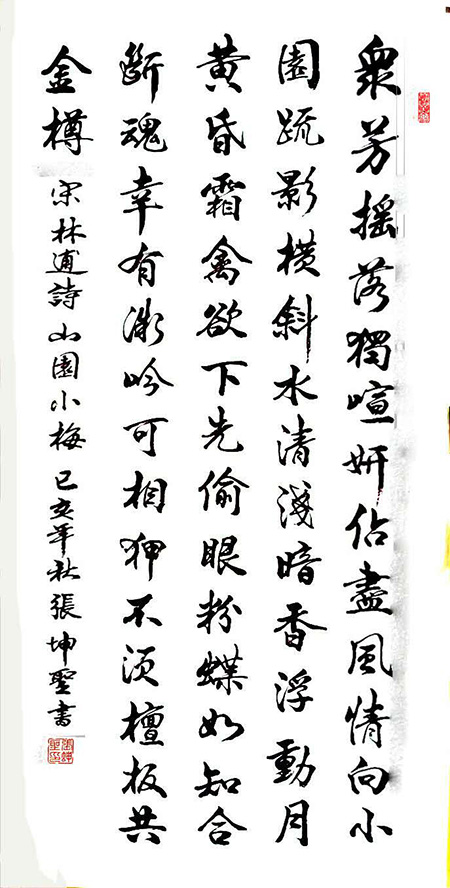 衆芳摇落獨喧妍佔盡風情向小
園疏影横斜水清淺暗香浮動月
黄昏霜禽欲下先偷眼粉蝶如知合
斷魂幸有微吟可相狎不須檀板共
金樽 宋林逋詩山園小梅 己亥年秋張坤聖書